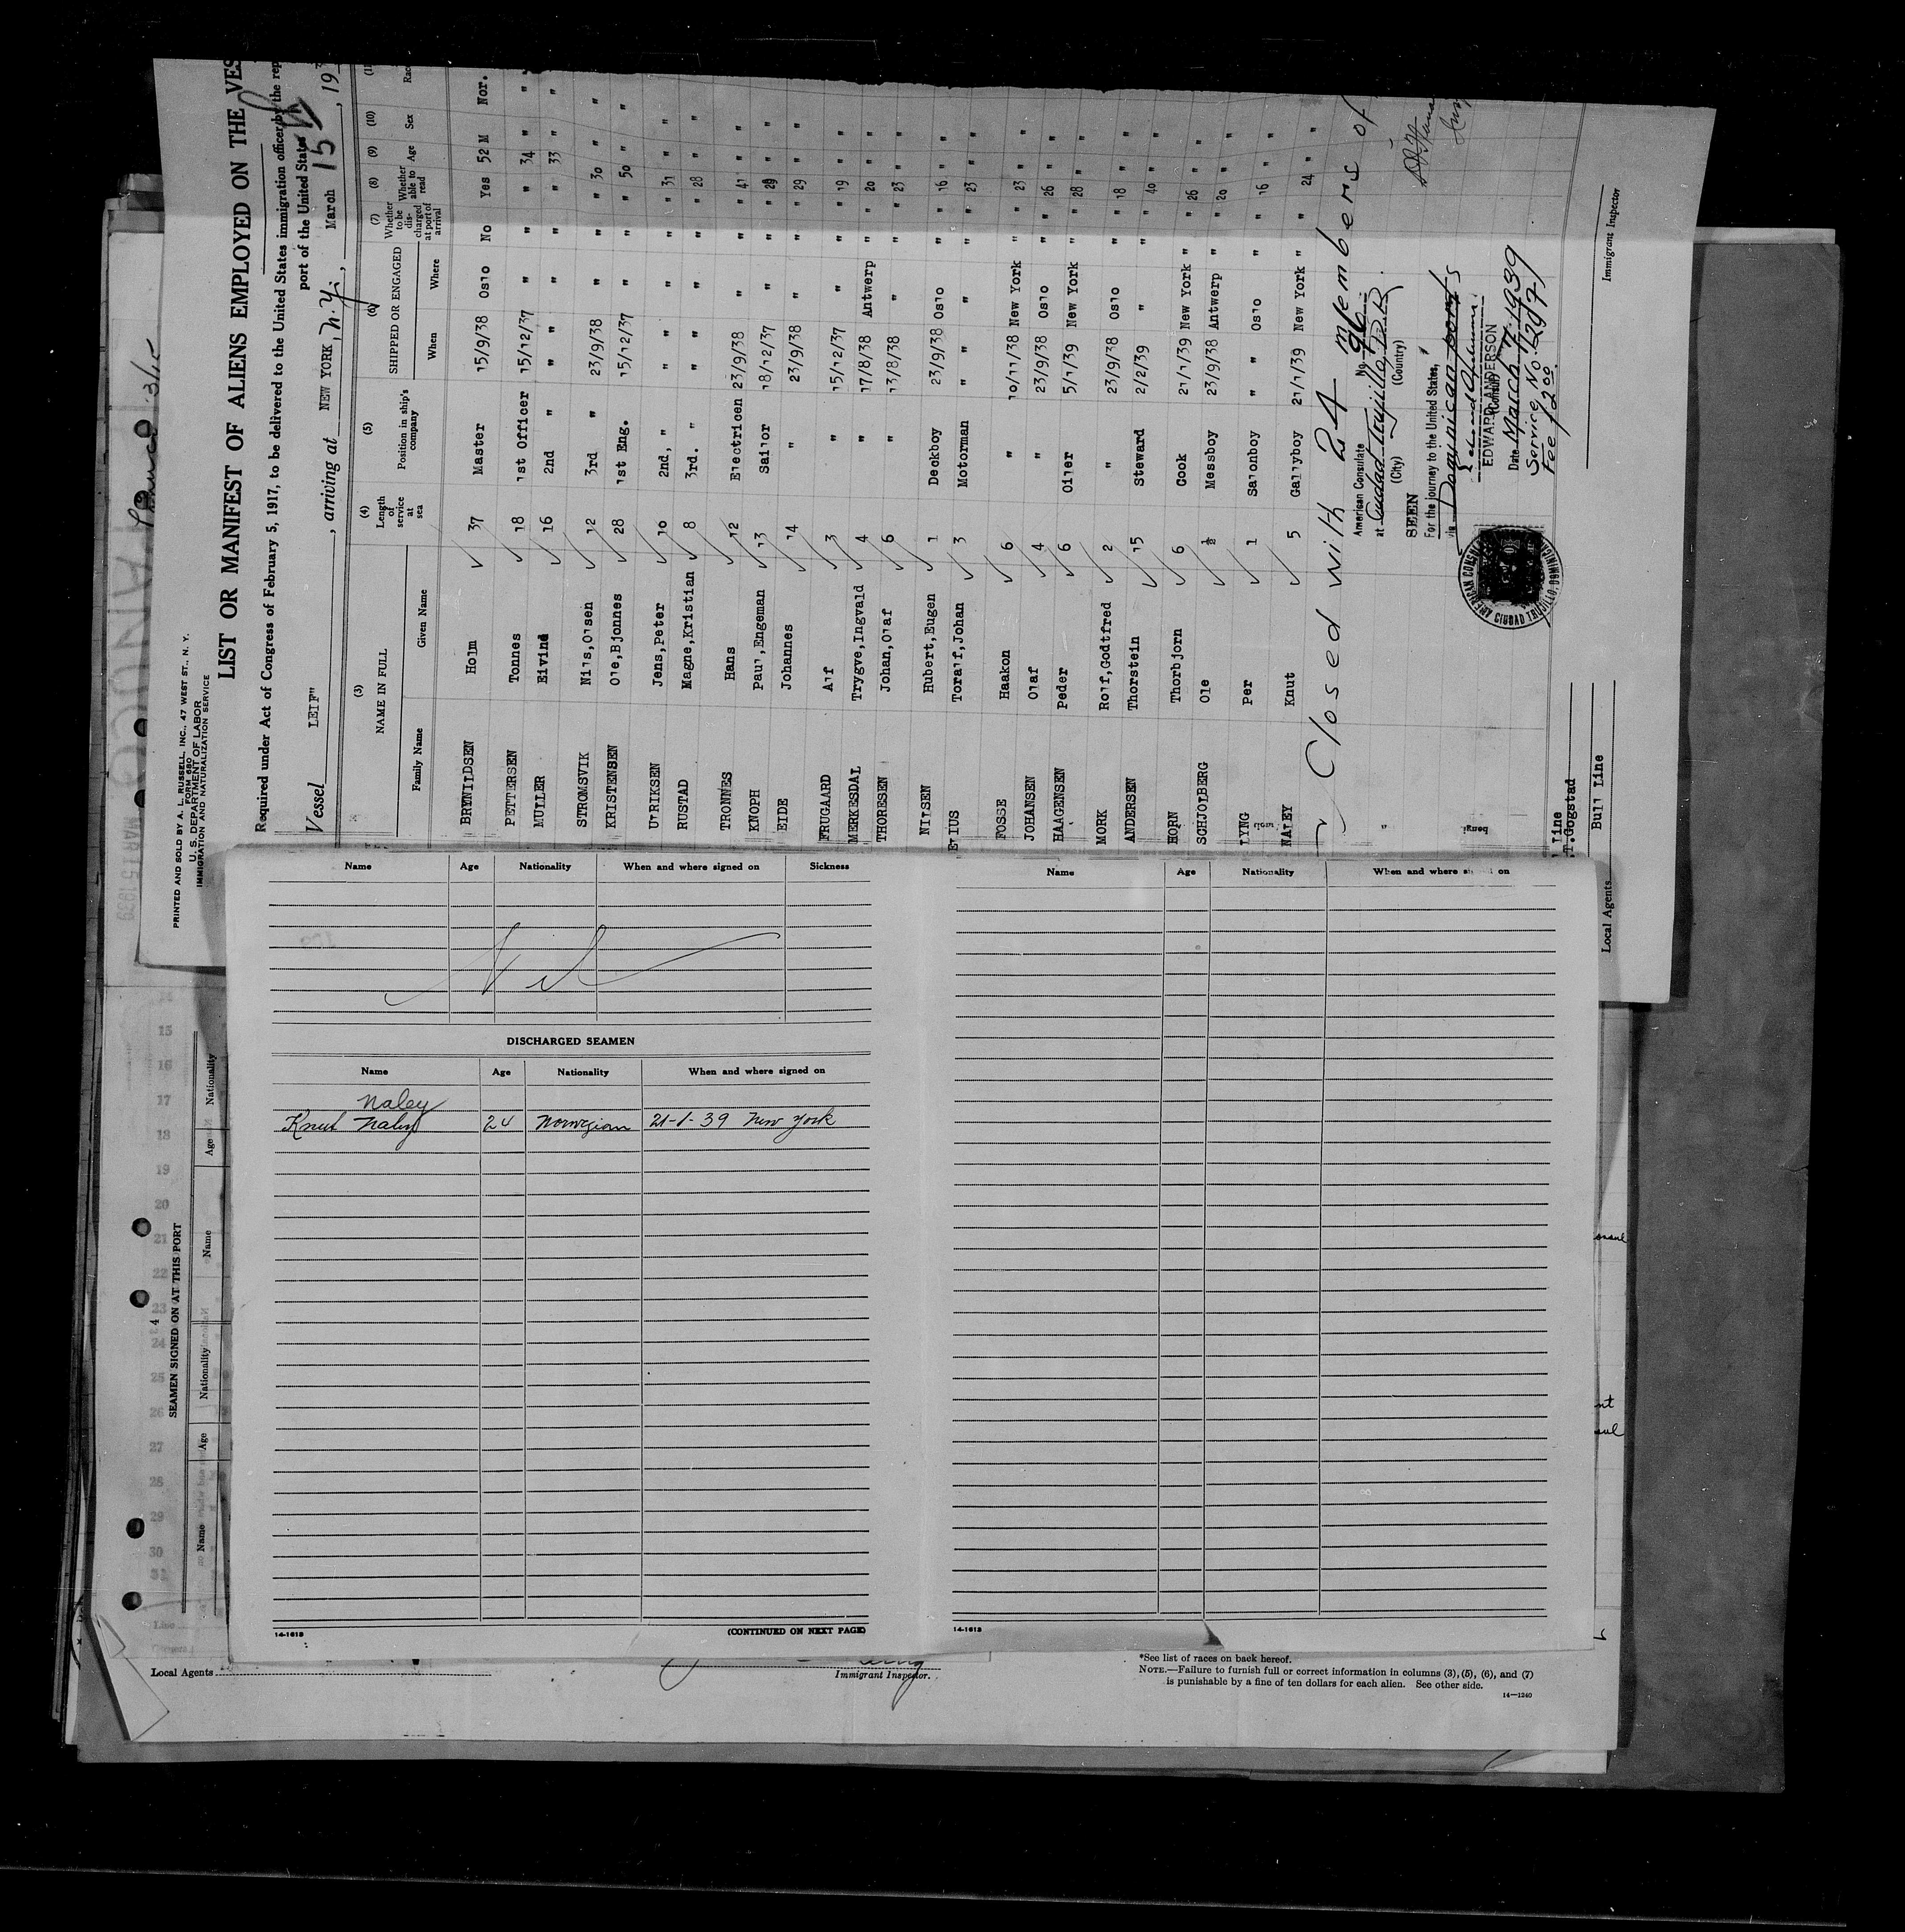 PRINTED AND SOLD BY A. L. RUSSELL, INC., 47 WEST ST., N. Y.
FORM 680
U. S. DEPARTMENT OF LABOR
IMMIGRATION AND NATURALIZATION SERVICE
LIST OR MANIFEST OF ALIENS EMPLOYED ON THE VES
Required under Act of Congress of February 5, 1917, to be delivered to the United States immigration officer by the rep
port of the United States
Vessel LEIF" , arriving at NEW YORK, N.Y., March 15 , 193
(3) (4) (5) (6) (7) (8) (9) (10) (11
NAME IN FULL Length of service at sea Position in ship's company SHIPPED OR ENGAGED Whether to be discharged at port of arrival Whether able to read Age Sex Race
Family Name Given Name When Where
BRYNILDSEN Holm 37 Master 15/9/38 Oslo No Yes 52 M Nor.
PETTERSEN Tonnes 18 1st Officer 15/12/37 " " " 34 " "
MULLER Eivind 16 2nd " " " " " 33 " "
STROMSVIK Nils,Olsen 12 3rd " 23/9/38 " " " 30 " "
KRISTENSEN Ole,Bjonnes 28 1st Eng. 15/12/37 " " " 50 " "
ULRIKSEN Jens,Peter 10 2nd, " " " " " 31 " "
RUSTAD Magne,Kristian 8 3rd. " " " " " 28 " "
TRONNES Hans 12 Electricen 23/9/38 " " " 41 " "
KNOPH Paul,Engeman 13 Sailor 18/12/37 " " " 29 " "
EIDE Johannes 14 " 23/9/38 " " " 29 " "
FRUGAARD Alf 3 " 15/12/37 " " " 19 " "
MERKESDAL Trygve,Ingvald 4 " 17/8/38 Antwerp " " 20 " "
THORESEN Johan,Olaf 6 " 13/8/38 " " " 23 " "
NILSEN Hubert,Eugen 1 Deckboy 23/9/38 Oslo " " 16 " "
ELIUS Toralf,Johan 3 Motorman " " " " 23 " "
FOSSE Haakon 6 " 10/11/38 New York " " 23 " "
JOHANSEN Olaf 4 " 23/9/38 Oslo " " 26 " "
HAAGENSEN Peder 6 Oiler 5/1/39 New York " " 28 " "
MORK Rolf,Godtfred 2 " 23/9/38 Oslo " " 18 " "
ANDERSEN Thorstein 15 Steward 2/2/39 " " " 40 " "
HORN Thorbjorn 6 Cook 21/1/39 New York " " 26 " "
SCHJOLBERG Ole ½ Messboy 23/9/38 Antwerp " " 20 " "
LYNG Per 1 Salonboy " Oslo " " 16 " "
NALEY Knut 5 Gallyboy 21/1/39 New York " " 24 " "
Closed with 24 members of
American Consulate No. 96
at Ciudad Trujillo, D.R.
(City) (Country)
SEEN
For the journey to the United States,
via Dominican ports
EDWARD ANDERSON
(Consul)
Date March 7, 1939
Service No. 1297
Fee $2.00
AMERICAN CONSULATE
CIUDAD TRUJILLO, DOMINICAN
Immigrant Inspector
Line
T.Gogstad
Bull Line
Local Agents
MAR 15 1939
Name Age Nationality When and where signed on Sickness
Nil
DISCHARGED SEAMEN
Name Age Nationality When and where signed on
Naley
Knut Naley 24 Norwegian 21-1-39 New York
14-1613
(CONTINUED ON NEXT PAGE)
Name Age Nationality When and where signed on
14-1613
4
SEAMEN SIGNED ON AT THIS PORT
Name Age Nationality Name Age Nationality
15
16
17
18
19
20
21
22
23
24
25
26
27
28
29
30
31
Local Agents
Immigrant Inspector.
*See list of races on back hereof.
NOTE.—Failure to furnish full or correct information in columns (3), (5), (6), and (7)
is punishable by a fine of ten dollars for each alien. See other side.
14—1240